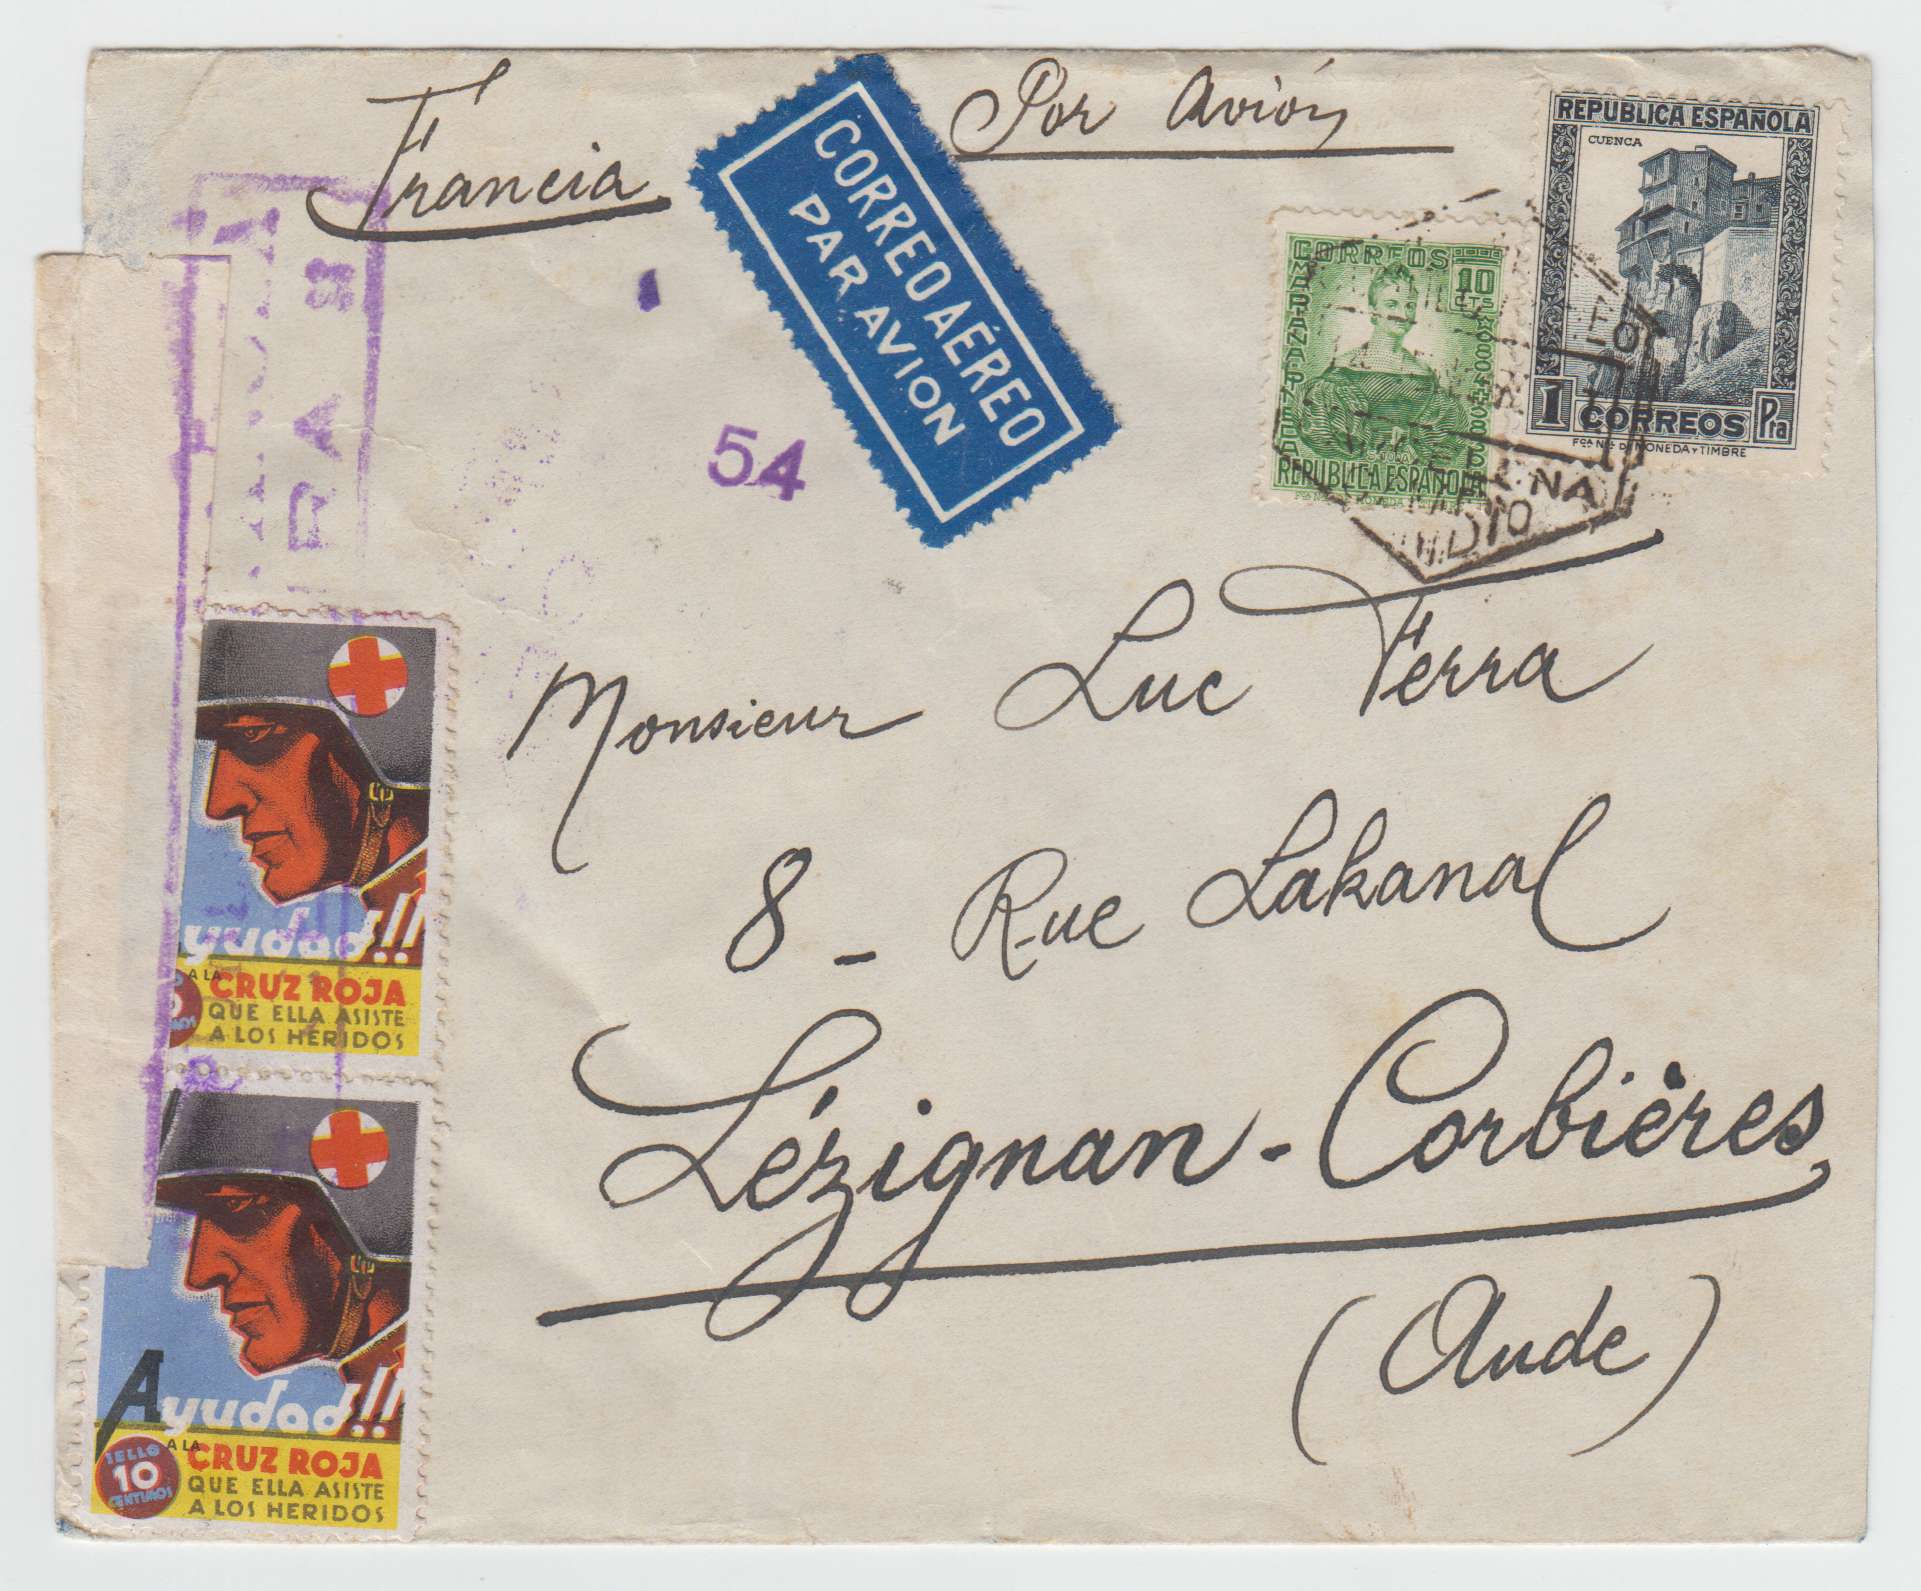 Francia
Por Avión
CORREO AÉREO
PAR AVION
REPUBLICA ESPAÑOLA
CUENCA
1 CORREOS Pta
Fca Nal DE MONEDA Y TIMBRE
CORREOS
10 CTS
MARIANA PINEDA
REPUBLICA ESPAÑOLA
54
Monsieur Luc Ferra
8 - Rue Lakanal
Lézignan - Corbières
(Aude)
yudad!!
A LA
CRUZ ROJA
QUE ELLA ASISTE
A LOS HERIDOS
Ayudad!!
SELLO
10
CENTIMOS
A LA
CRUZ ROJA
QUE ELLA ASISTE
A LOS HERIDOS